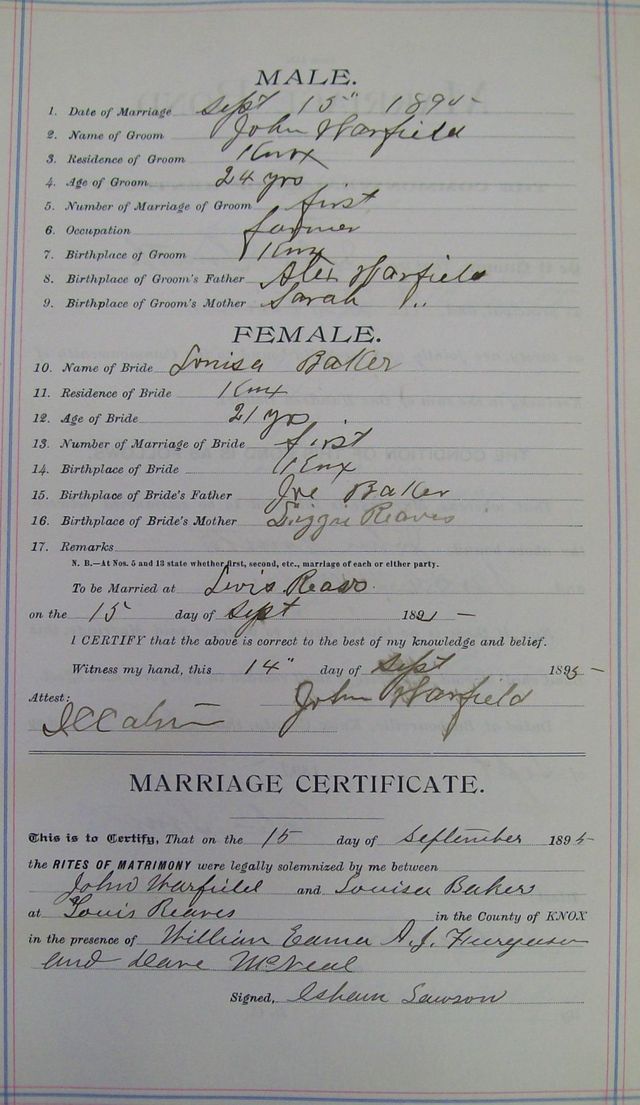 MALE.
1. Date of Marriage Sept 15" 1895
2. Name of Groom John Warfield
3. Residence of Groom Knox
4. Age of Groom 24 yrs
5. Number of Marriage of Groom first
6. Occupation farmer
7. Birthplace of Groom Knox
8. Birthplace of Groom's Father Alex Warfield
9. Birthplace of Groom's Mother Sarah "
FEMALE.
10. Name of Bride Louisa Baker
11. Residence of Bride Knox
12. Age of Bride 21 yrs
13. Number of Marriage of Bride first
14. Birthplace of Bride Knox
15. Birthplace of Bride's Father Joe Baker
16. Birthplace of Bride's Mother Lizzie Reaves
17. Remarks
N. B.—At Nos. 5 and 13 state whether first, second, etc., marriage of each or either party.
To be Married at Lewis Reavs
on the 15 day of Sept 189
I CERTIFY that the above is correct to the best of my knowledge and belief.
Witness my hand, this 14" day of Sept 1895
Attest: John Warfield
MARRIAGE CERTIFICATE.
This is to Certify, That on the 15 day of September 1895
the RITES OF MATRIMONY were legally solemnized by me between
John Warfield and Louisa Baker
at Louis Reaves in the County of KNOX
in the presence of William A. J. Furguson
and Dave McNeal
Signed, Isham Lawson